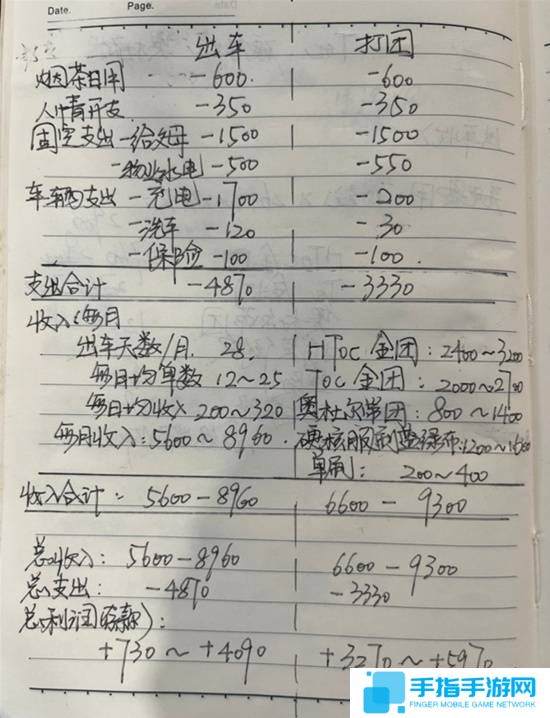 Date. Page.
出车 打团
烟茶日用 -600. -600
人情开支 -350 -350
固定支出-给父母 -1500 -1500
-物业水电 -500 -550
车辆支出-充电 -1700 -200
-洗车 -120 -30
-保险 -100 -100.
支出合计 -4870 -3330
收入(每月
出车天数/月. 28. HToc 金团: 2400~3200
每日均单数 12~25 Toc 金团: 2000~2700
每日均收入 200~320 奥杜尔单团: 800~1400
每月收入: 5600~8960. 硬核服刷
单刷: 200~400
收入合计: 5600-8960 6600-9300
总收入: 5600-8960 6600-9300
总支出: -4870 -3330
总利润(存款):
+730~+4090 +3270~+5970
手指手游网
FINGER MOBILE GAME NETWORK